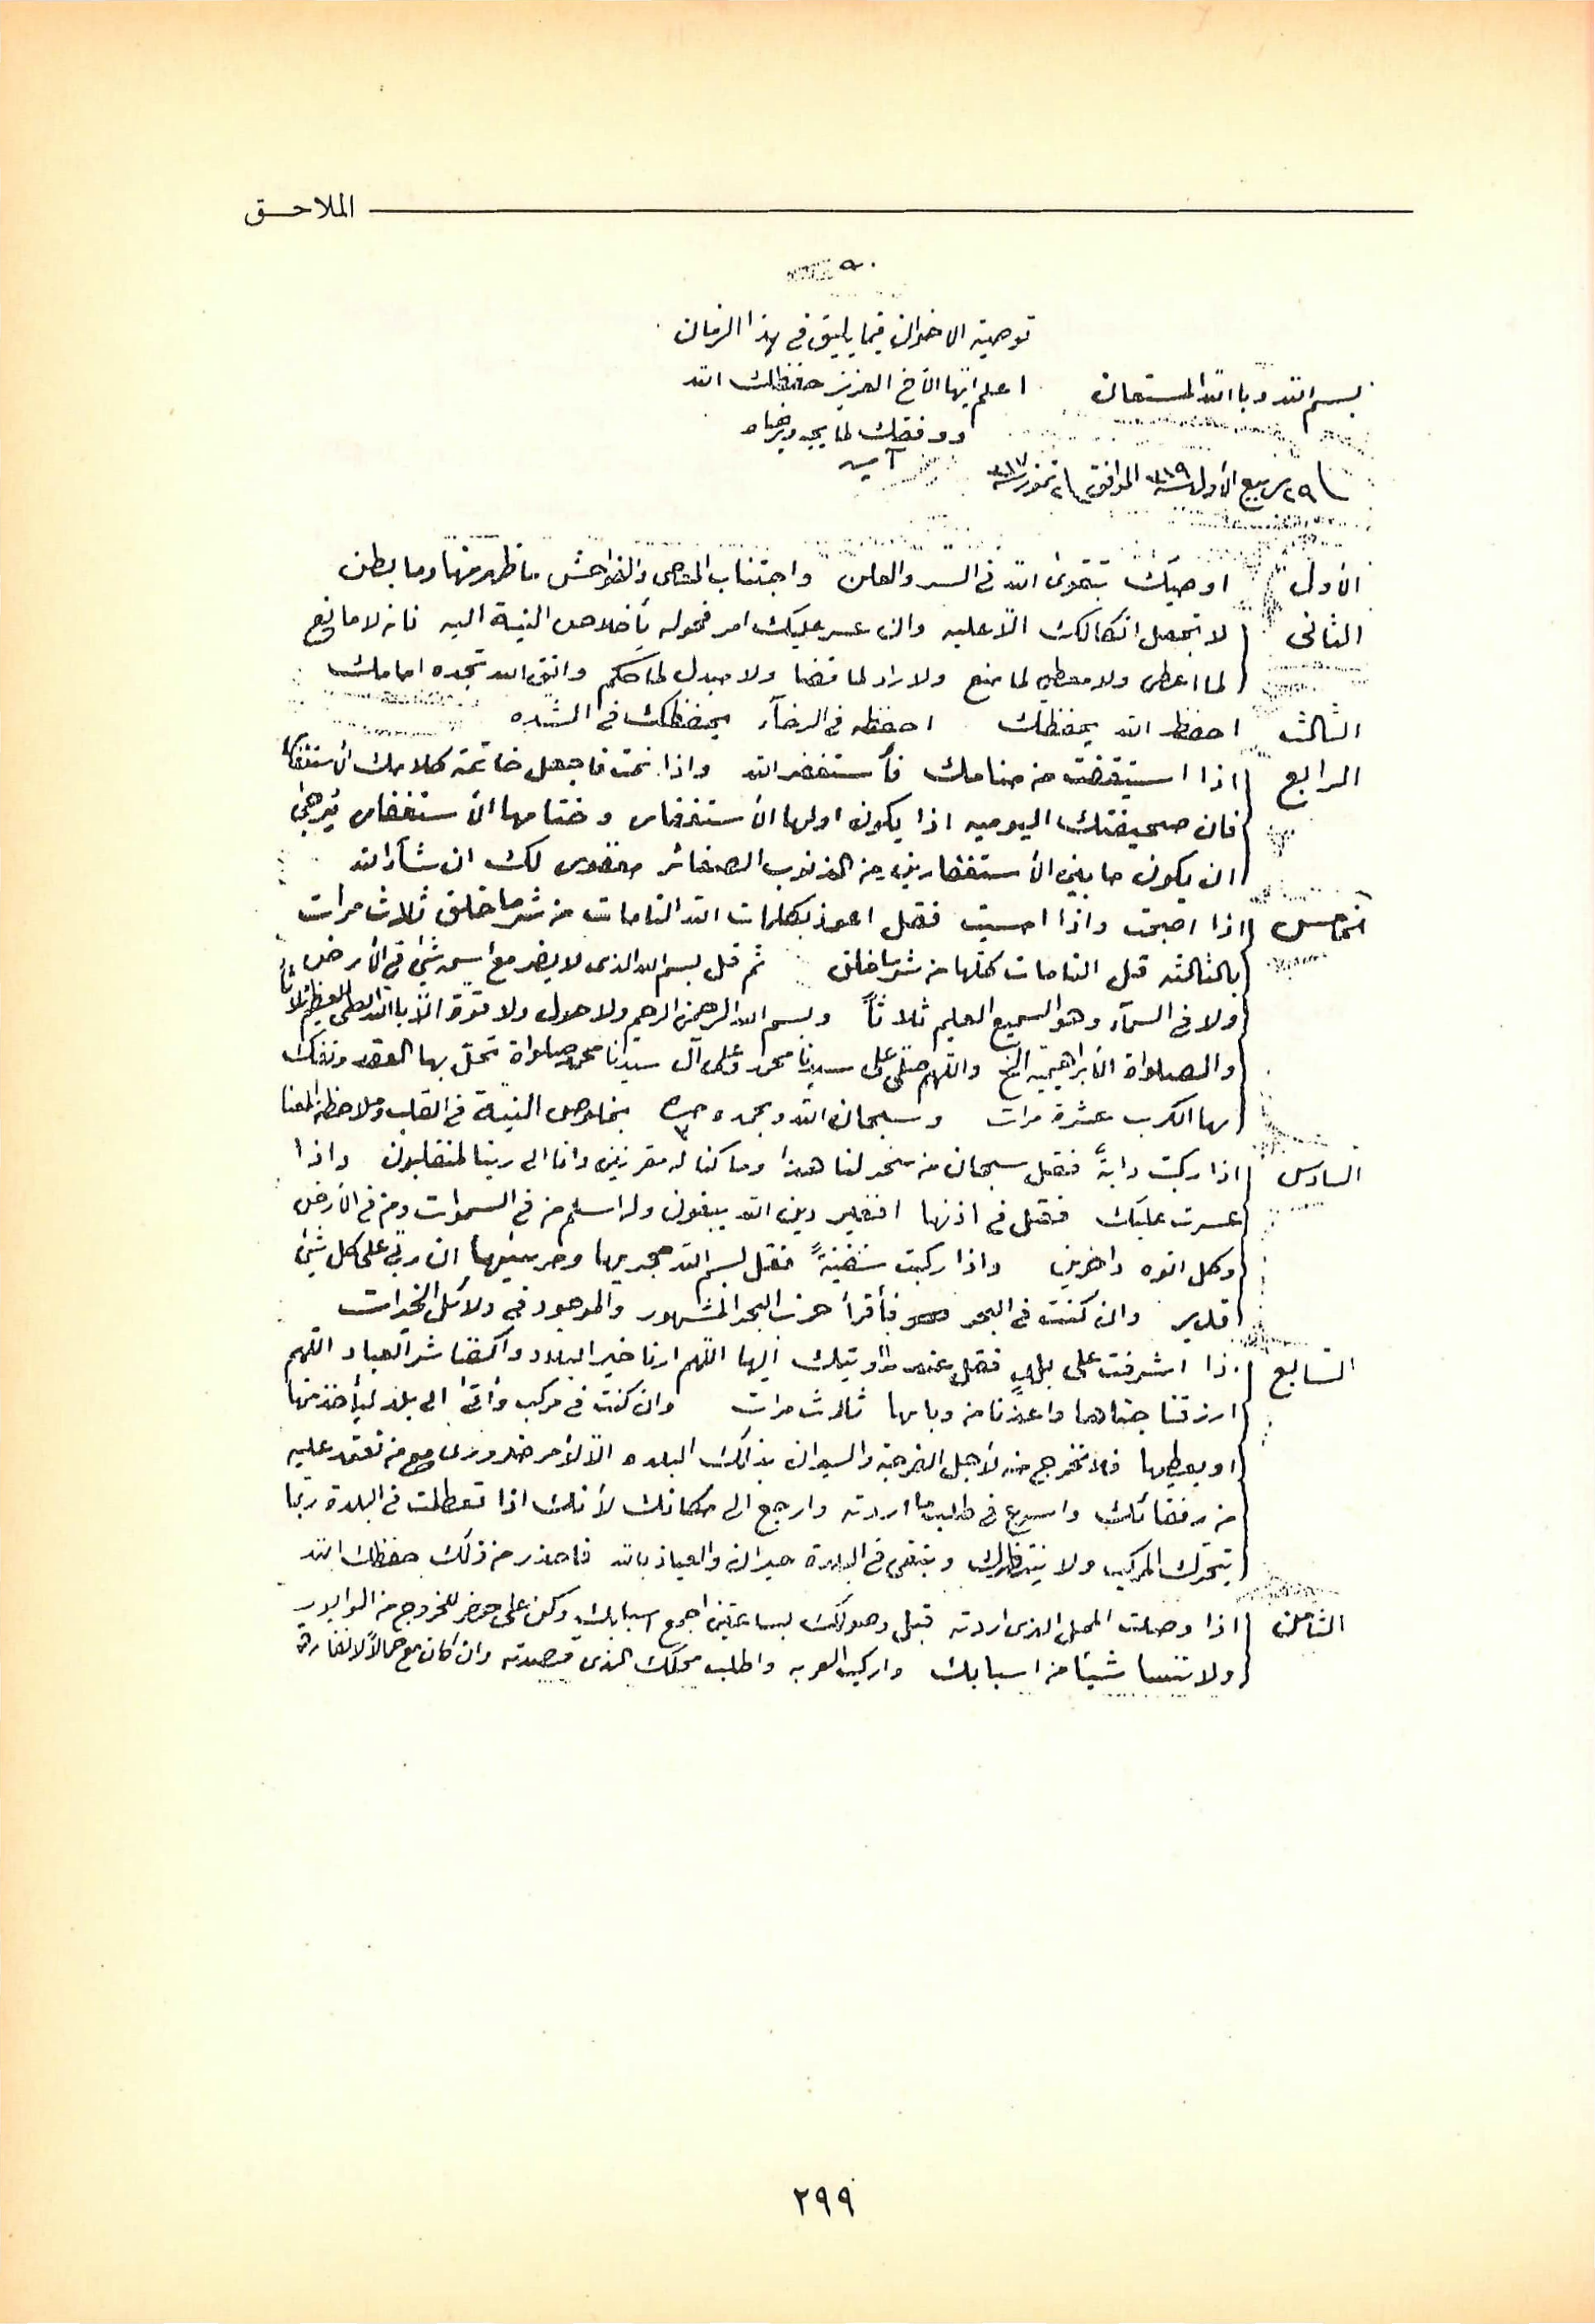 الملاحق
٩٠
توصية الاخوان فيما يليق في هذا الزمان
بسم الله وبالله المستعان اعلم ايها الأخ العزيز حفظك الله
ووفقك لما يحبه ويرضاه
آمين
٢٩ ربيع الأول سنة ٣١٩ الموافق ٢ تموز سنة ٣١٧
الأول اوصيك بتقوى الله في السر والعلن واجتناب المعاصي والفواحش ما ظهر منها وما بطن
الثاني لا تجعل اتكالك الا عليه وان عسر عليك امر فحوله بأخلاص النية اليه فانه لا مانع
لما اعطى ولا معطي لما منع ولا راد لما قضا ولا مبدل لما حكم واتق الله تجده امامك
الثالث احفظ الله يحفظك احفظه في الرخآء يحفظك في الشده
الرابع اذا استيقضت من منامك فأستغفر الله واذا نمت فاجعل خاتمة كلامك الأستغفار
فان صحيفتك اليوميه اذا يكون اولها الأستغفار وختامها الأستغفار يرجى
ان يكون ما بين الأستغفارين من الذنوب الصغائر مغفور لك ان شآء الله
الخامس اذا اصبحت واذا امسيت فقل اعوذ بكلمات الله التامات من شر ما خلق ثلاث مرات
بالثالثه قبل التامات كلها من شر ما خلق ثم قل بسم الله الذي لا يضر مع اسمه شئ في الأرض
ولا في السمآء وهو السميع العليم ثلاثاً وبسم الله الرحمن الرحيم ولا حول ولا قوة الا بالله العلي العظيم ثلاثاً
والصلواة الأبراهيمية الخ واللهم صلي على سيدنا محمد وعلى آل سيدنا محمد صلواة تحل بها العقد وتفك
بها الكرب عشرة مرات وسبحان الله وبحمده بخلوص النية في القلب وملاحظة المعنا
السادس اذا ركبت دابةً فقل سبحان من سخر لنا هذا وما كنا له مقرنين وانا الى ربنا لمنقلبون واذا
عسرت عليك فقل في اذنها افغير دين الله يبغون وله اسلم من في السموات ومن في الأرض
وكل اتوه داخرين واذا ركبت سفينةً فقل بسم الله مجريها ومرسيها ان ربي على كل شئ
قدير وان كنت في البحر فأقرأ حزب البحر المشهور والموجود في دلائل الخيرات
السابع اذا اشرفت على بلدٍ فقل عند رؤيتك اليها اللهم ارنا خير البلاد واكفنا شر العباد اللهم
ارزقنا جناها واعذنا من وباها ثلاث مرات وان كنت في مركب وأتى الى بلد ليأخذ منها
او يعطيها فلا تخرج منه لأجل الفرجة والسيران بذلك البلده الا لأمر ضروري مع من تعتمد عليه
من رفقائك واسرع في طلب ما اردته وارجع الى مكانك لأنك اذا تعطلت في البلدة ربما
تحرك المركب ولا ينتظرك وتبقى في البلدة حيران والعياذ بالله فاحذر من ذلك حفظك الله
الثامن اذا وصلت المحل الذي اردته قبل وصولك بساعتين اجمع اسبابك وكن على حضر للخروج من الوابور
ولا تنسا شيئا من اسبابك واركب العربه واطلب محلك الذي قصدته وان كان مع حمالاً لا تفارقه
٢٩٩